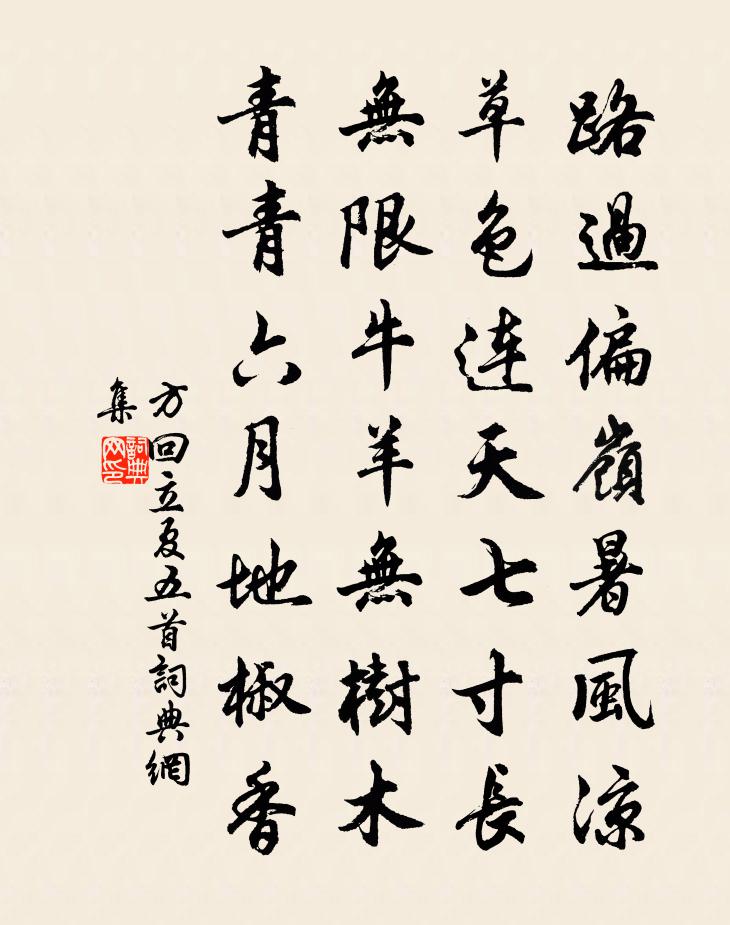 路過偏嶺暑風涼
草色連天七寸長
無限牛羊無樹木
青青六月地椒香
方回立夏五首詞典網
集
詞典
網印